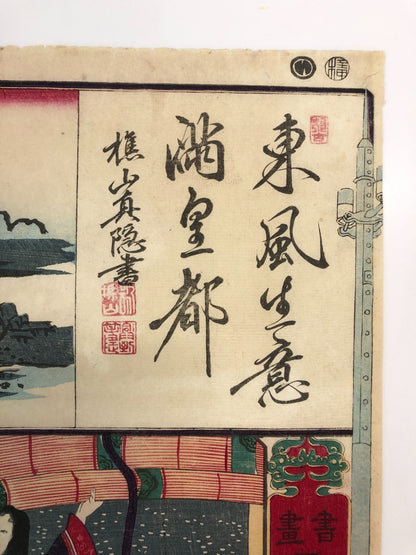 東風生意
満皇都
樵山真隠書
書畫